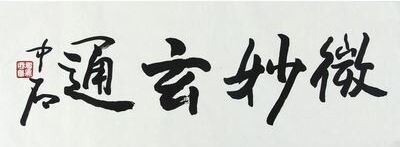 微妙玄通
中石